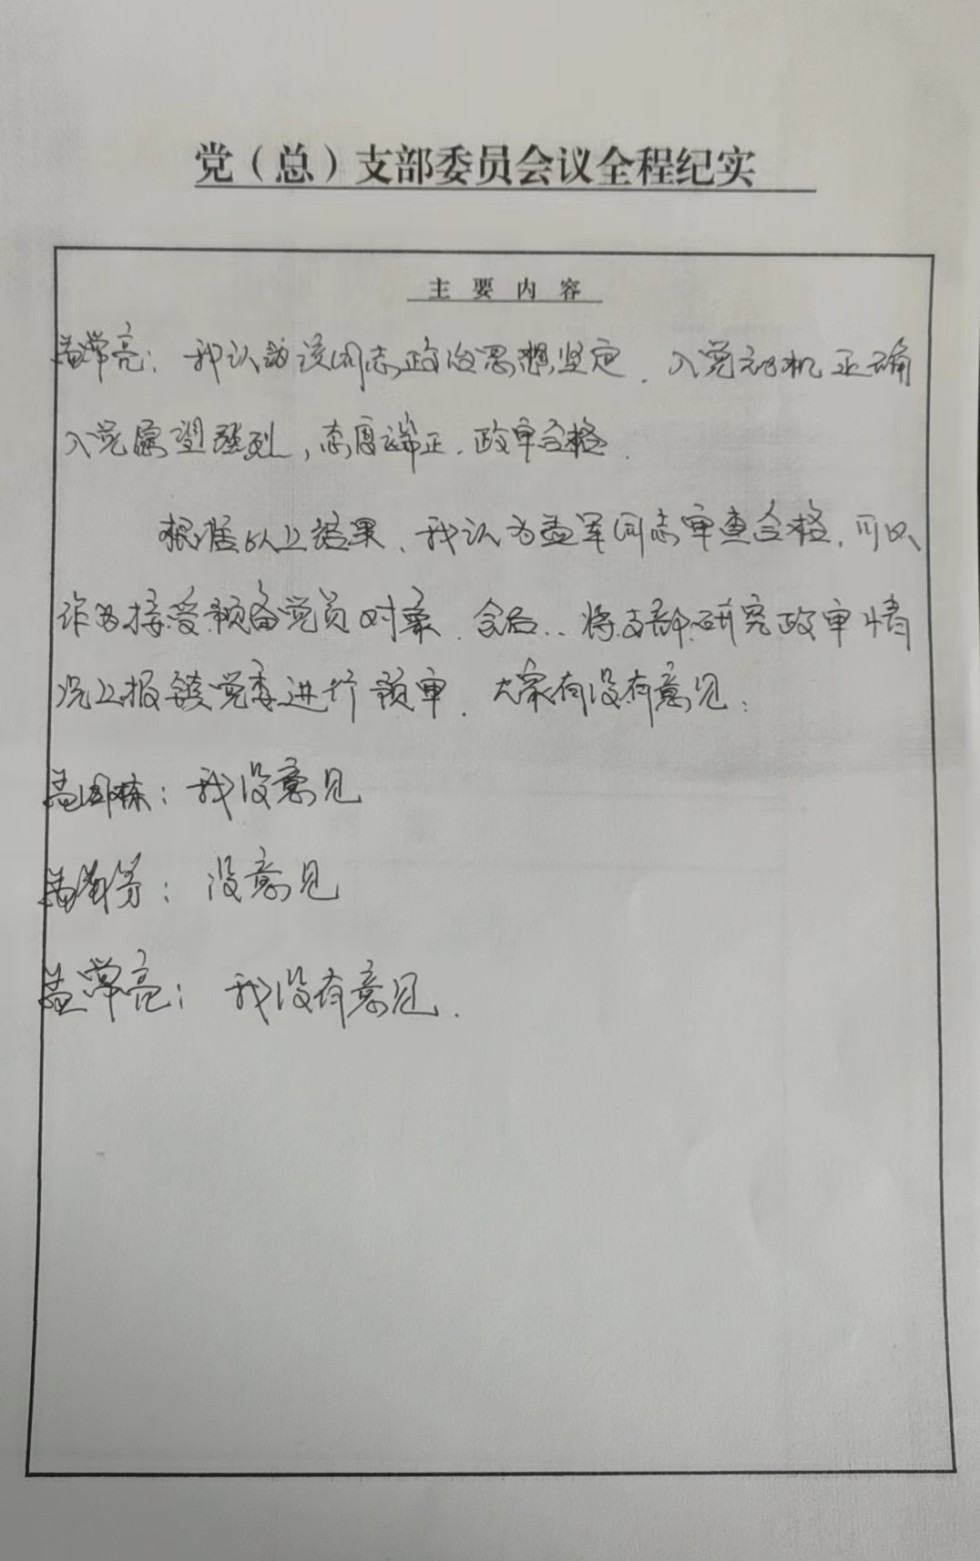 党（总）支部委员会议全程纪实
主要内容
孟常亮：我认为该同志政治思想坚定．入党动机正确
入党愿望强烈，态度端正．政审合格．
根据以上结果、我认为孟军同志审查合格．可以
作为接受预备党员对象．会后．．将支部研究政审情
况上报镇党委进行预审．大家有没有意见：
孟国栋：我没意见
孟 ：没意见
孟常亮：我没有意见．